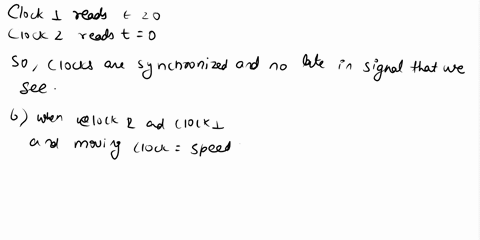 Clock 1 reads t = 0
Clock 2 reads t = 0
So, clocks are synchronized and no late in signal that we
see.
b) when clock 2 and clock 1
and moving clock = speed